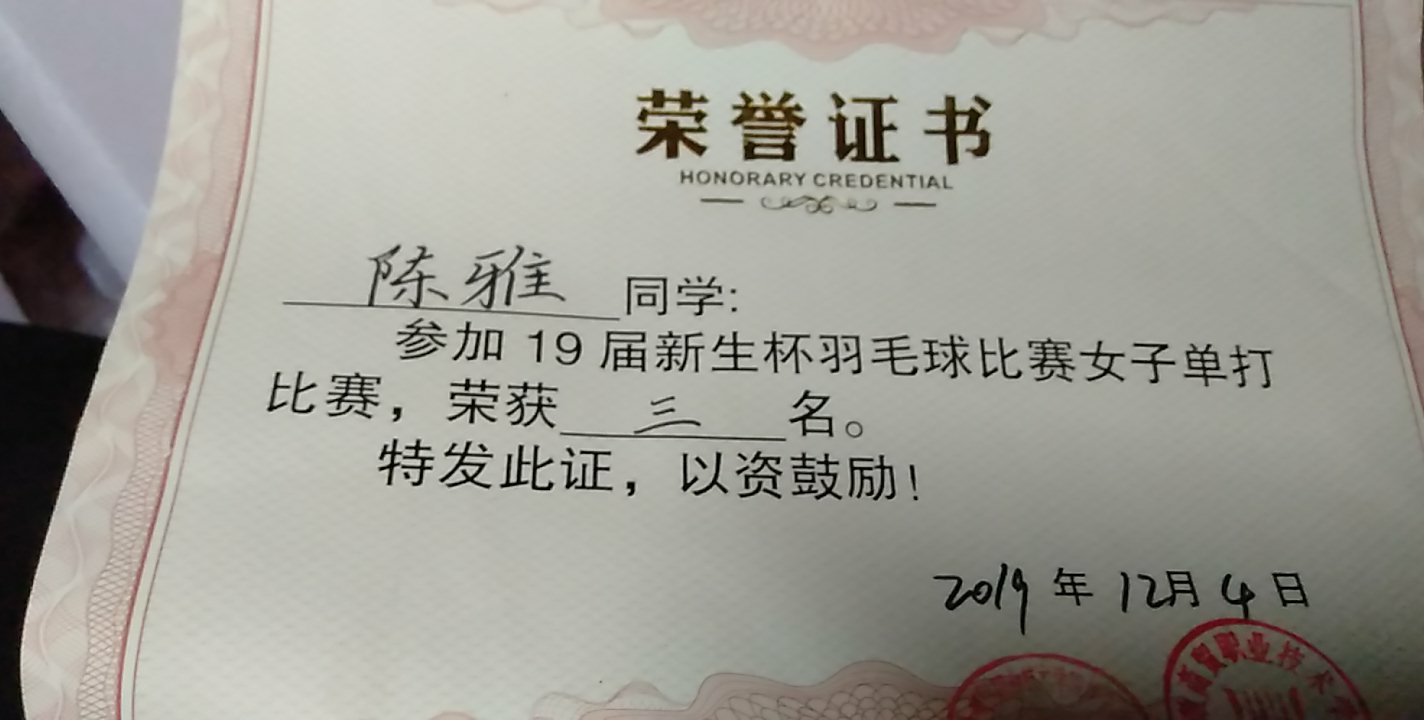 荣誉证书
HONORARY CREDENTIAL
陈雅 同学:
参加 19 届新生杯羽毛球比赛女子单打
比赛，荣获 三 名。
特发此证，以资鼓励!
2019 年 12月 4 日
职业技术